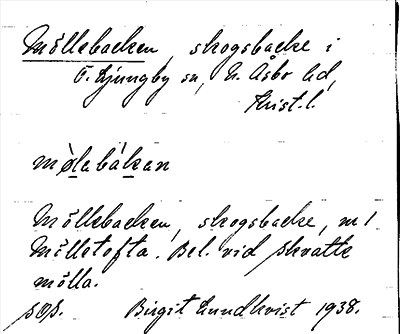 Möllebacken, skogsbacke i
Ö. Ljungby sn, N. Åsbo hd,
Krist. l.
mølabákan
Möllebacken, skogsbacke, n/
Mölletofta. Bel. vid Skvatte
mölla.
Birgit Lundkvist 1938.